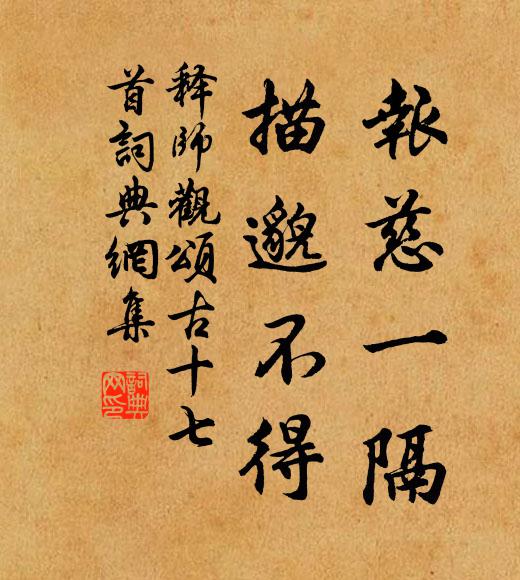 報慈一隔
描邈不得
释師觀頌古十七
首詞典網集
詞典
网印